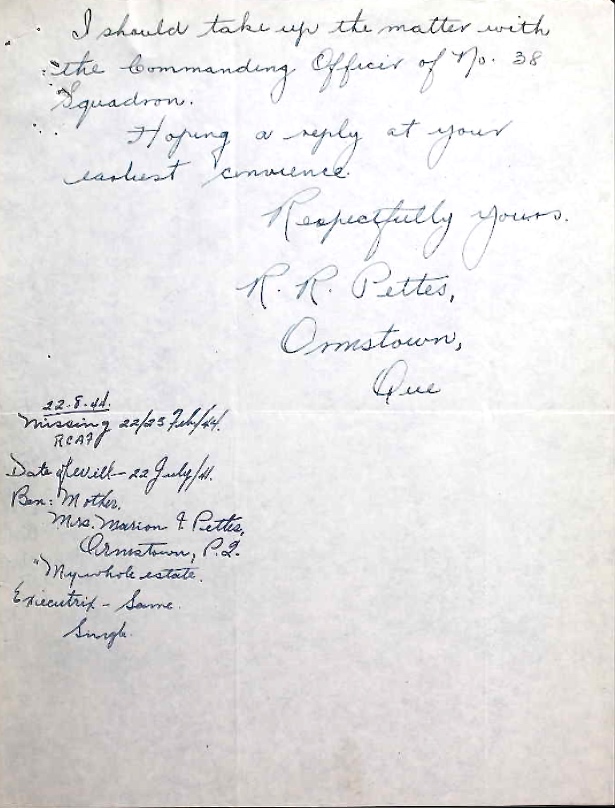 I should take up the matter with
the Commanding Officir of No. 38
Squadron.
Hoping a reply at your
earliest convience.
Respectfully yours.
R. R. Pettes,
Ormstown,
Que
22.8.44.
Missing 22/23 Feb/44.
RCAF
Date of Will - 22 July/41.
Ben: Mother.
Mrs. Marion I. Pettes,
Ormstown, P.Q.
"My whole estate.
Executrix - Same.
Single.